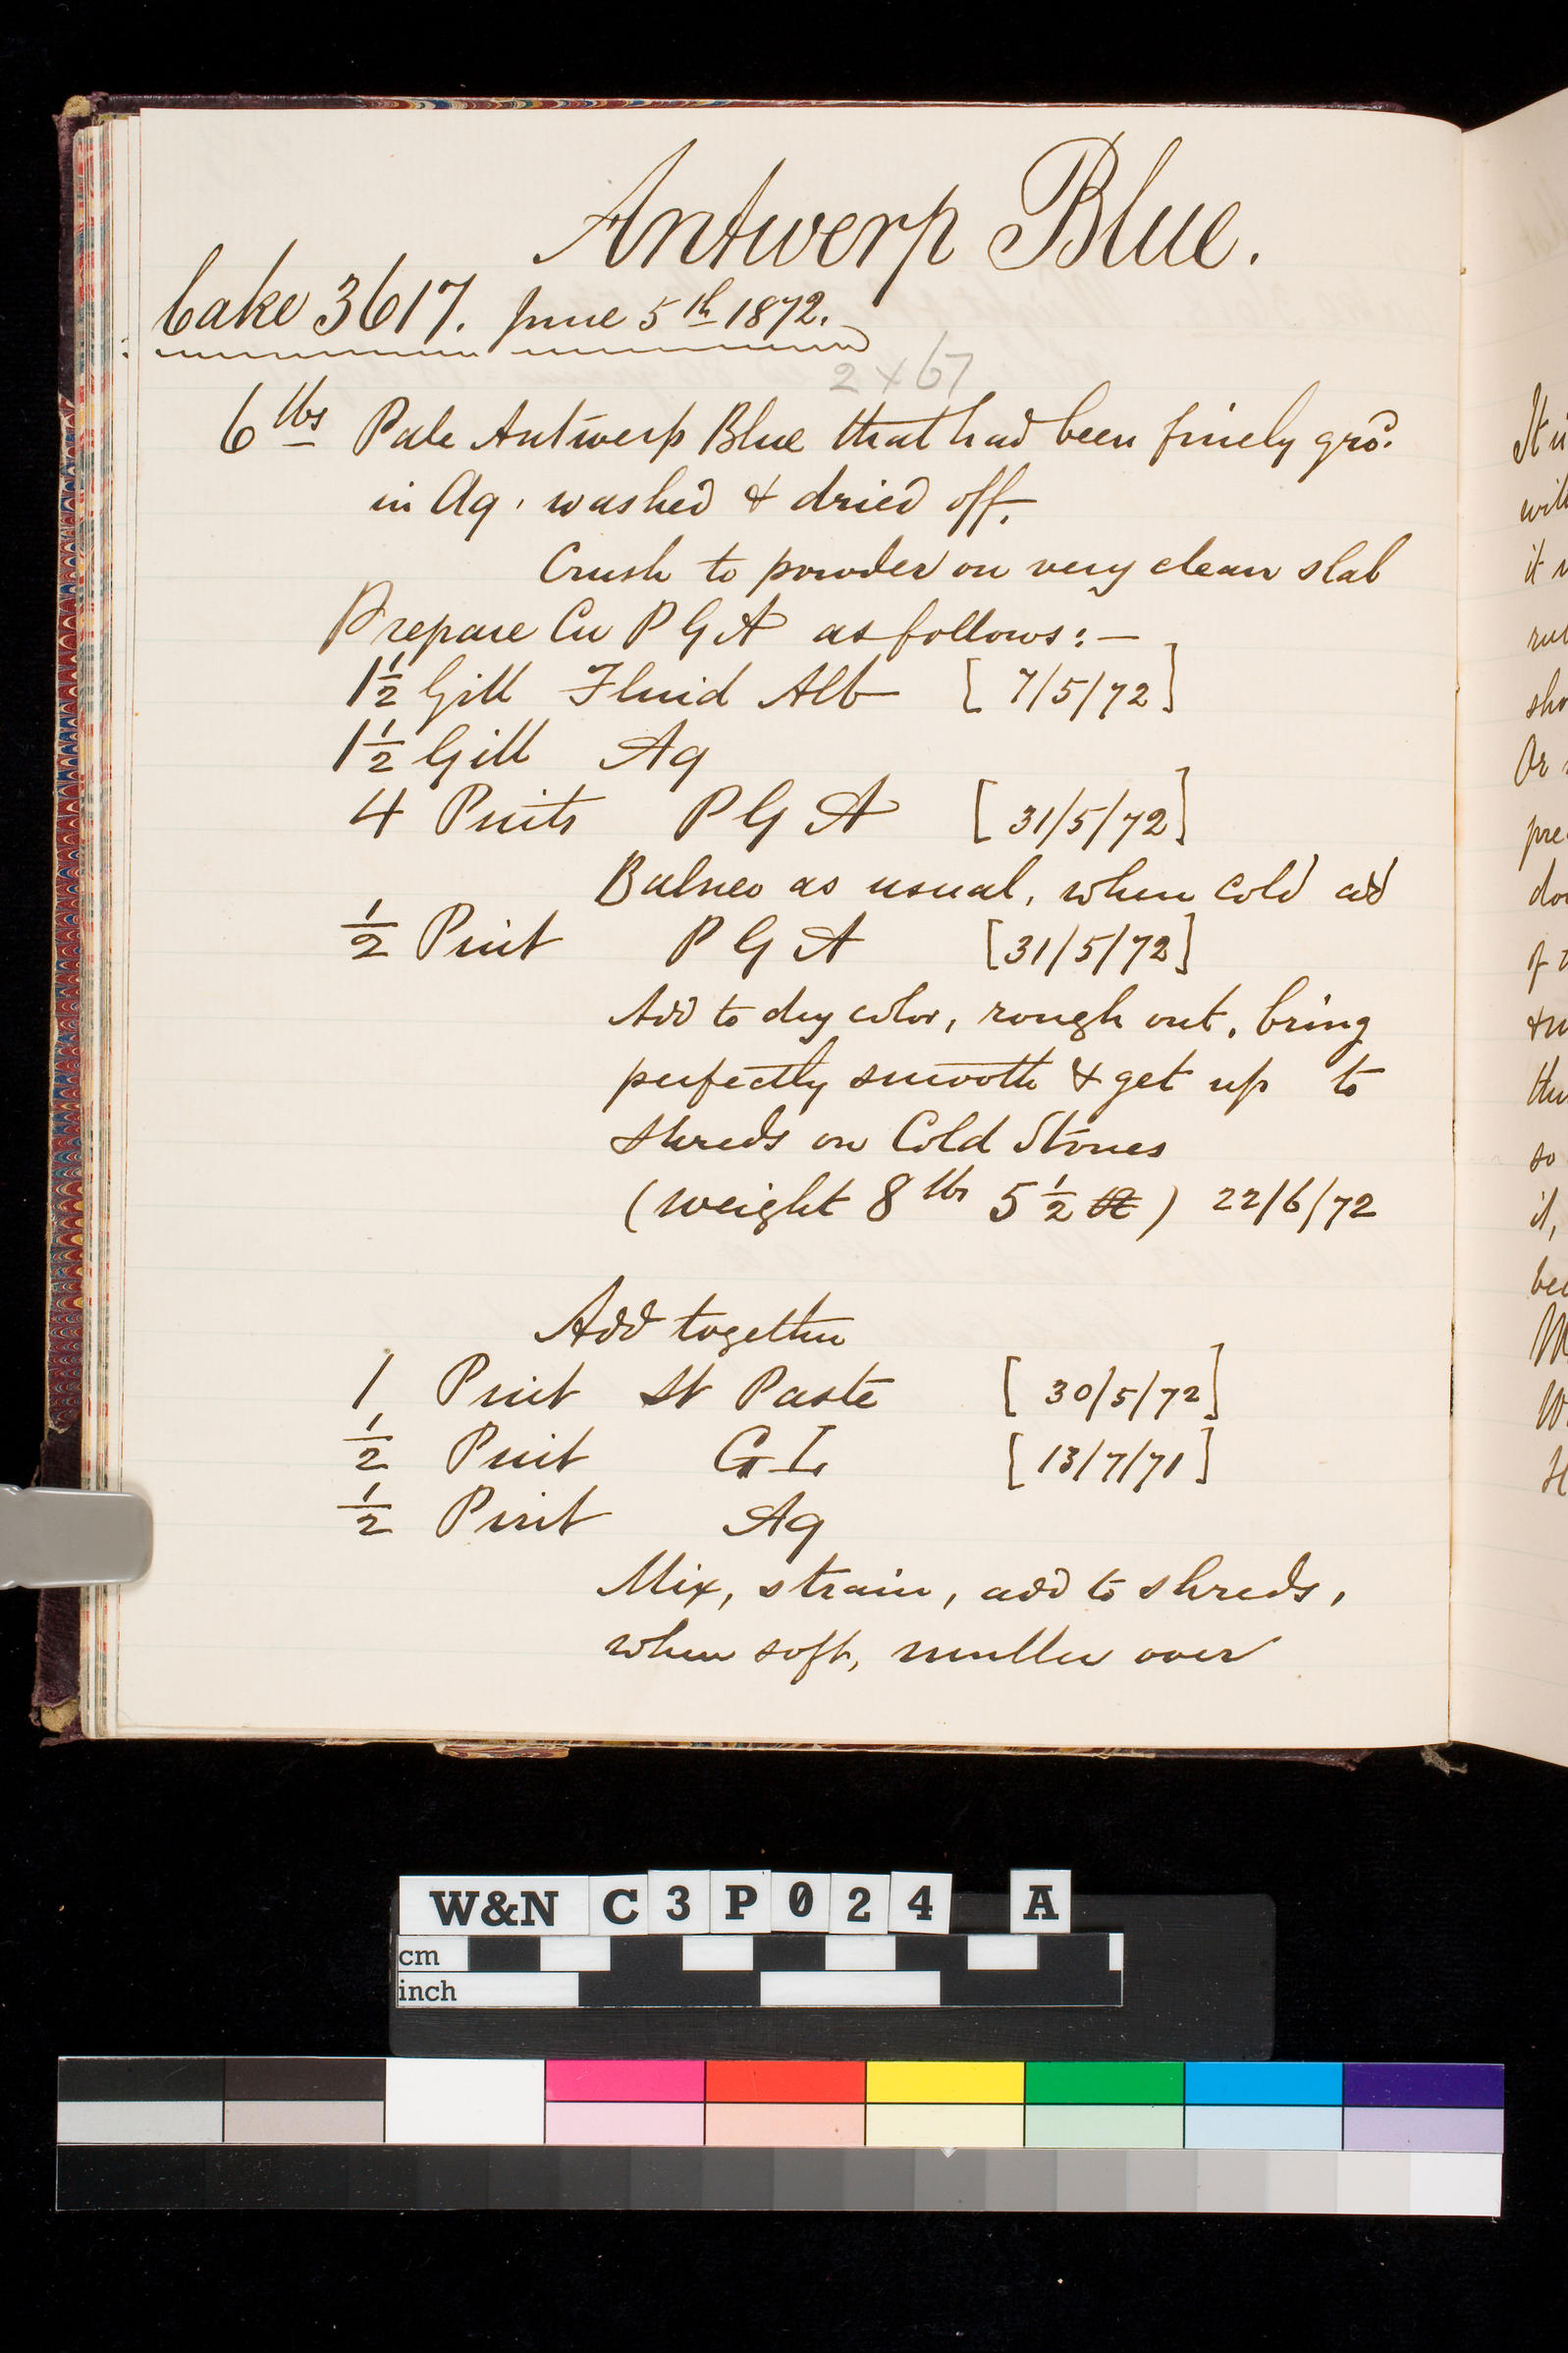 Antwerp Blue.
Cake 3617. June 5th 1872.
2 x 67
6 lbs Pale Antwerp Blue that had been finely gro.d
in Aq. washed & dried off.
Crush to powder on very clean slab
Prepare Cu P G A as follows:—
1½ Gill Fluid Alb [7/5/72]
1½ Gill Aq
4 Pints P G A [31/5/72]
Balneo as usual, when cold add
½ Pint P G A [31/5/72]
Add to dry color, rough out, bring
perfectly smooth & get up to
shreds on Cold Stones
(weight 8 lbs 5½ ) 22/6/72
Add together
1 Pint St Paste [30/5/72]
½ Pint G L [13/7/71]
½ Pint Aq
Mix, strain, add to shreds,
when soft, muller over
It
will
it
sho
Or
pre
of
so
it,
W&N C3P024 A
cm
inch